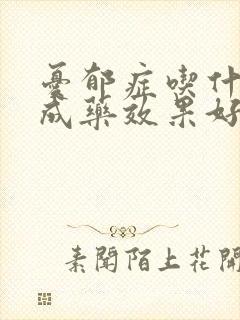 憂郁症喫什
成藥效果好
素聞陌上花開